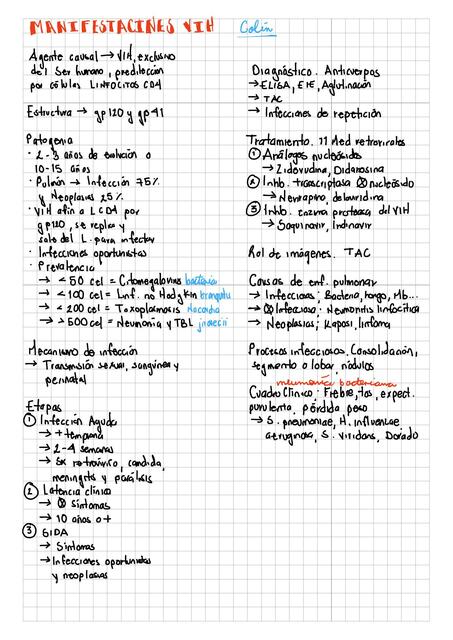 MANIFESTACINES VIH
Colín
Agente causal → VIH, exclusivo
del Ser humano, predilección
por células LINFOCITOS CD4
Estructura → gp120 y gp41
Patogenia
· 2-3 años de evolución o
10-15 años
· Pulmón → Infección 75%
y Neoplasias 25%
· VIH afín a LCD4 por
gp120, se replica y
sale del L. para infectar
· Infecciones oportunistas
· Prevalencia
→ < 50 cel = Citomegalovirus bacteria
→ < 100 cel = Linf. no Hodgkin
→ < 200 cel = Toxoplasmosis Nocardia
→ > 500 cel = Neumonía y TBL
Mecanismo de infección
→ Transmisión sexual, sanguínea y
perinatal
Etapas
① Infección Aguda
→ + temprana
→ 2-4 semanas
→ SX retrovírico, candida,
meningitis y parálisis
② Latencia clínica
→ Ⓧ Síntomas
→ 10 años o +
③ SIDA
→ Síntomas
→ Infecciones oportunistas
y neoplasias
Diagnóstico. Anticuerpos
→ ELISA, EIE, Aglutinación
→ TAC
→ Infecciones de repetición
Tratamiento. 11 Med retrovirales
① Análogos nucleósidos
→ Zidovudina, Didanosina
② Inhb. transcriptasa Ⓧ nucleósido
→ Nevirapina, delavirdina
③ Inhb. enzima proteasa del VIH
→ Saquinavir, Indinavir
Rol de imágenes. TAC
Causas de enf. pulmonar
→ Infecciosas; Bacteria, hongo, Mb...
→ Ⓧ Infecciosa; Neumonitis linfocítica
→ Neoplasias; Kaposi, linfoma
Procesos infecciosos. Consolidación,
segmento o lobar, nódulos
neumonía bacteriana
Cuadro Clínico. Fiebre, tos, expect.
purulenta, pérdida peso
→ S. pneumoniae, H. influenzae
aeruginosa, S. Viridans, Dorado